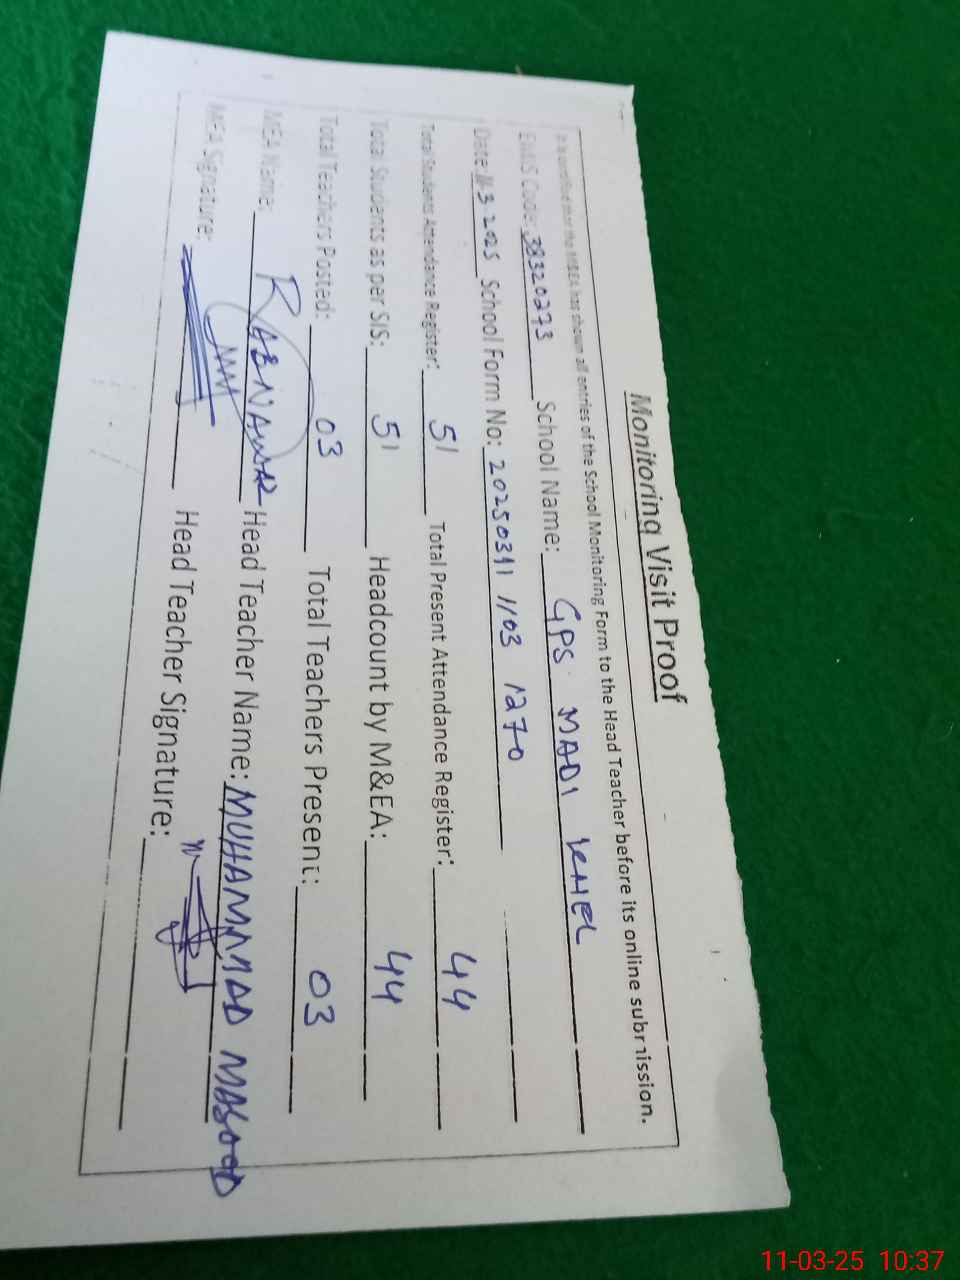 Monitoring Visit Proof
It is certified that the M&EA has shown all entries of the School Monitoring Form to the Head Teacher before its online submission.
EMIS Code: 38320273 School Name: GPS MADI KHEL
Date: 11-3-2025 School Form No: 20250311 1103 1270
Total Students Attendance Register: 51 Total Present Attendance Register: 44
Total Students as per SIS: 51 Headcount by M&EA: 44
Total Teachers Posted: 03 Total Teachers Present: 03
MEA Name: RABNAWAZ Head Teacher Name: MUHAMMAD MASOOD
MEA Signature: Head Teacher Signature:
11-03-25 10:37